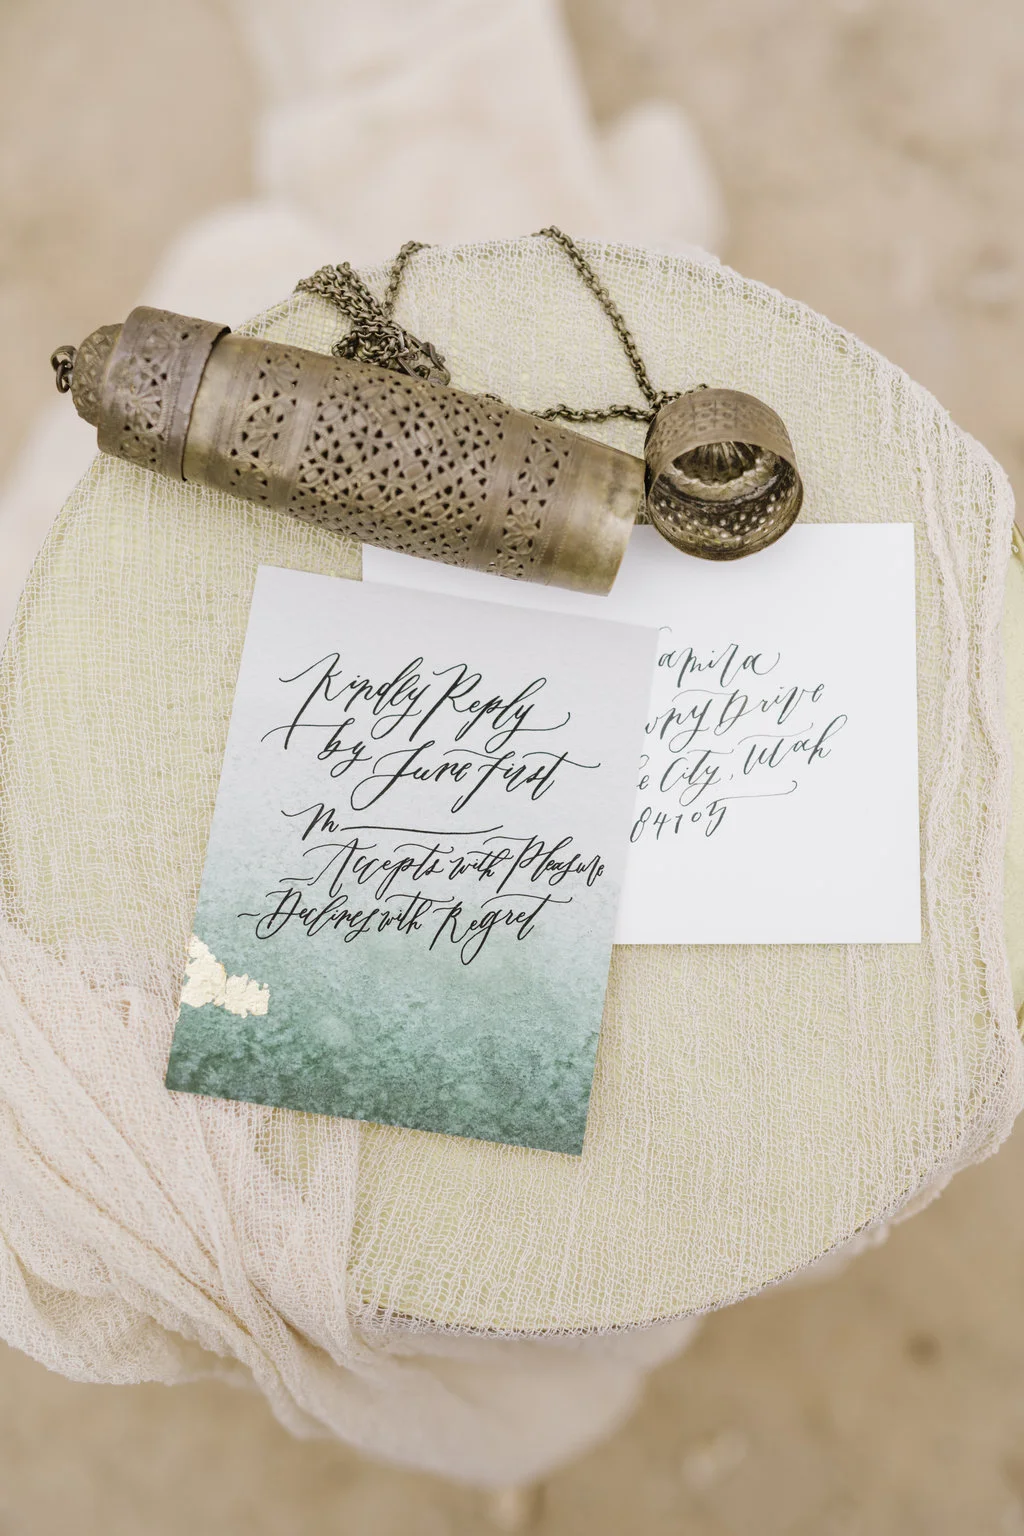 Kindly Reply
by June First
M
Accepts with Pleasure
Declines with Regret
Drive
City, Utah
84105